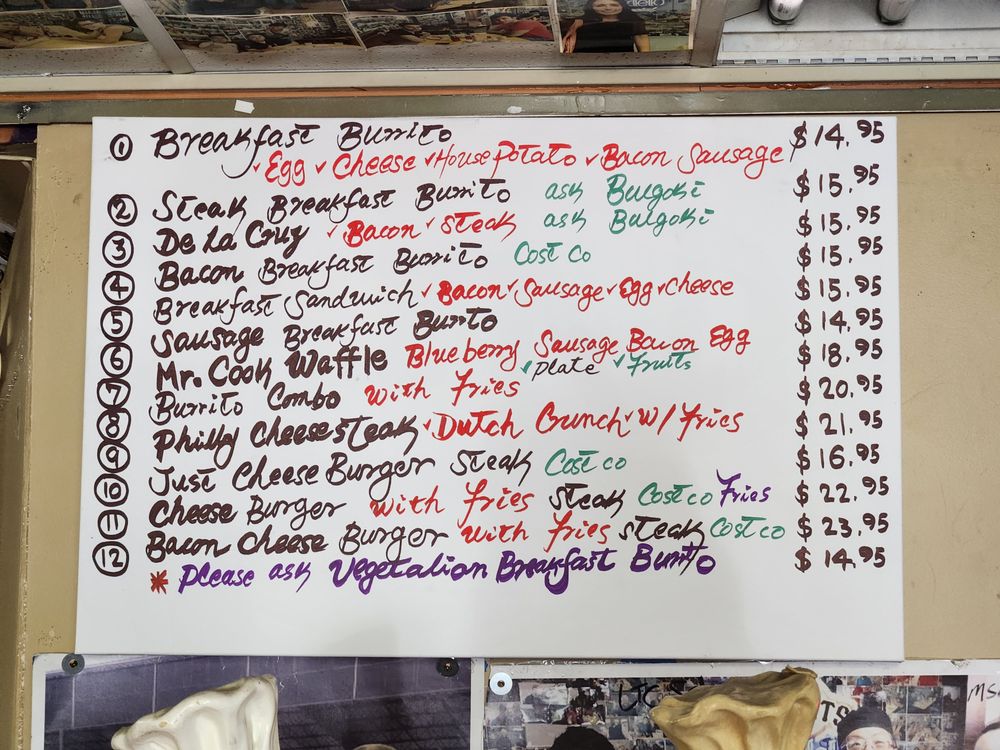 ① Breakfast Burrito $14.95
✓Egg ✓Cheese ✓House Potato ✓Bacon Sausage
② Steak Breakfast Burrito ask Bulgoki $15.95
③ De La Cruz ✓Bacon ✓Steak ask Bulgoki $15.95
④ Bacon Breakfast Burrito Cost co $15.95
⑤ Breakfast Sandwich ✓Bacon ✓Sausage ✓Egg ✓Cheese $15.95
⑥ Sausage Breakfast Burrito $14.95
⑦ Mr. Cook Waffle Blueberry Sausage Bacon Egg $18.95
✓Plate ✓Fruits
⑧ Burrito Combo with fries $20.95
⑨ Philly Cheese steak ✓Dutch Crunch ✓w/ fries $21.95
⑩ Just Cheese Burger Steak Cost co $16.95
⑪ Cheese Burger with fries steak Cost co Fries $22.95
⑫ Bacon Cheese Burger with fries steak Cost co $23.95
* Please ask Vegetalian Breakfast Burrito $14.95